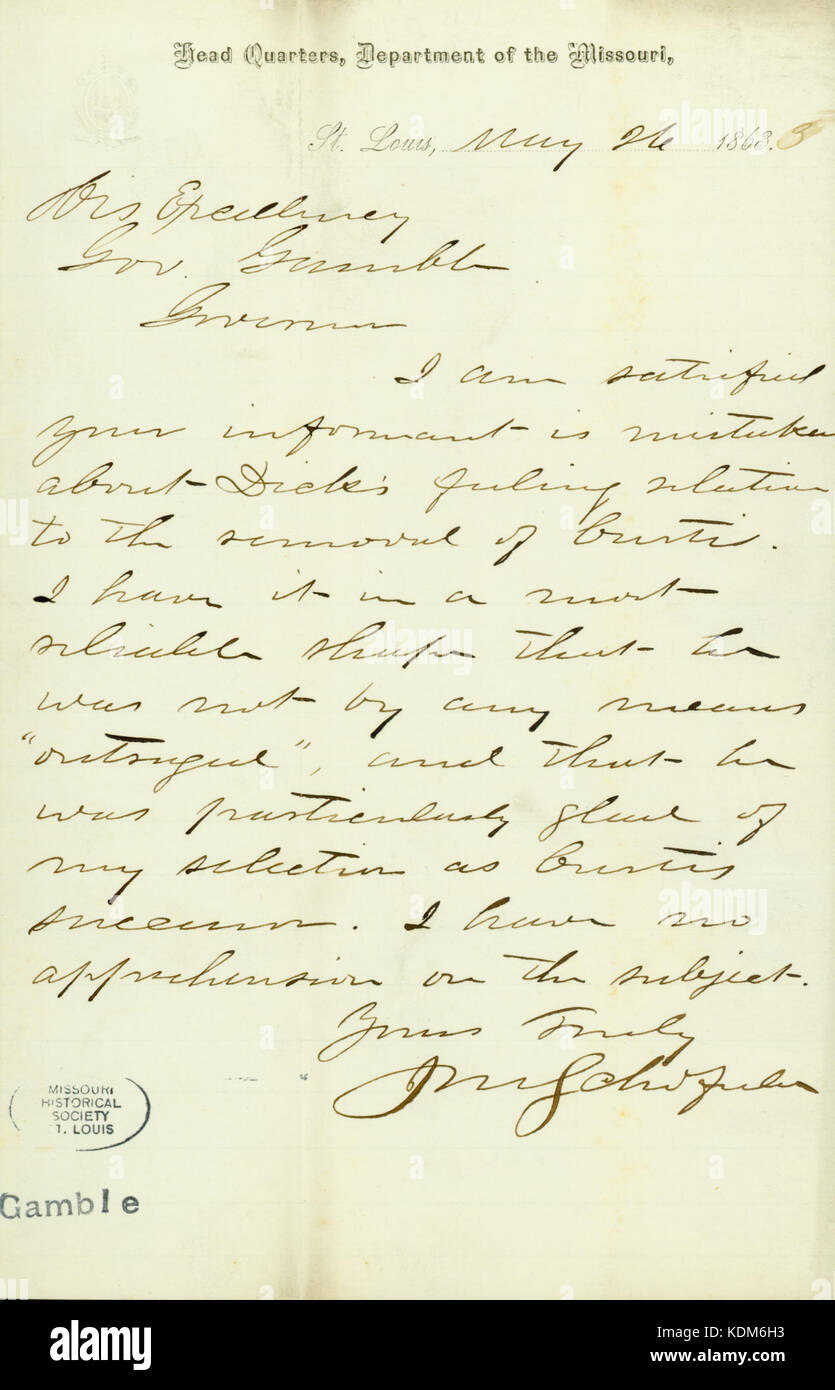 Head Quarters, Department of the Missouri,
St. Louis, May 26 1863. 3
His Excellency
Gov. Gamble
Governor
I am satisfied
your informant is mistaken
about Dick's feeling relative
to the removal of Curtis.
I have it in a most
reliable shape that he
was not by any means
"outraged", and that he
was particularly glad of
my selection as Curtis
successor. I have no
apprehension on the subject.
Yours Truly
JMSchofield
MISSOURI
HISTORICAL
SOCIETY
ST. LOUIS
Gamble
alamy
alamy
Image ID: KDM6H3
www.alamy.com